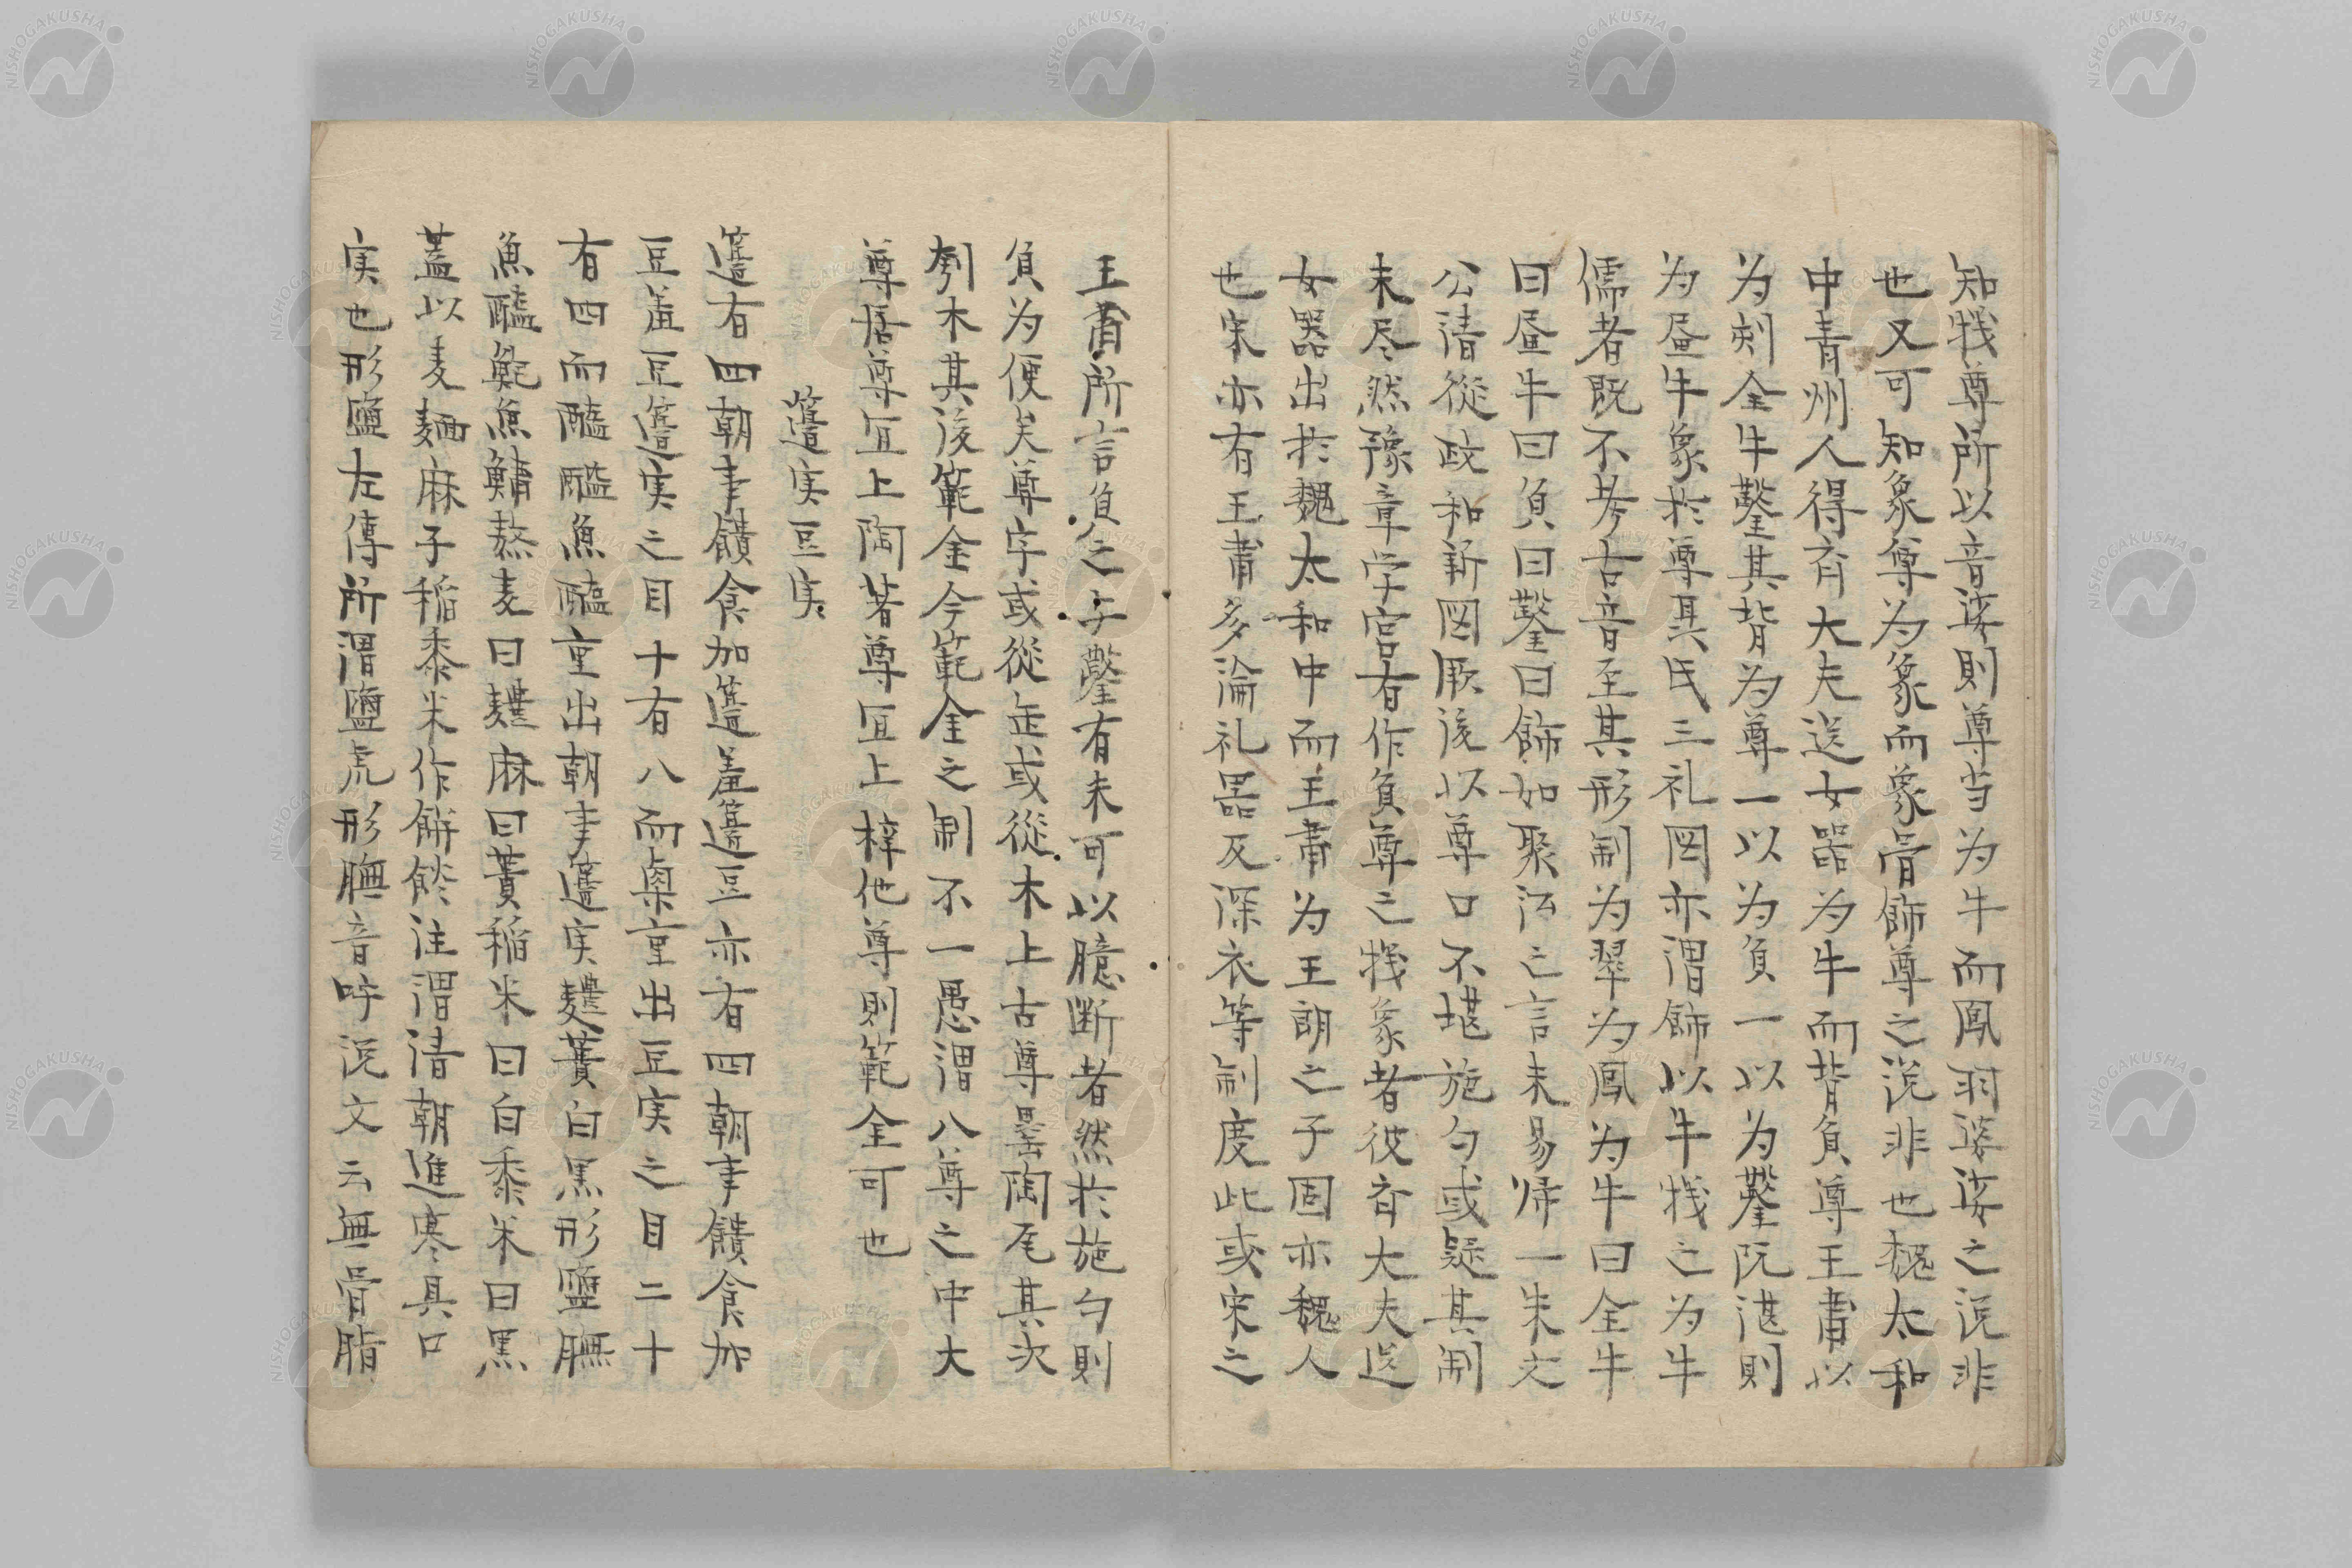 知犧尊所以音娑則尊当为牛而鳳羽婆娑之説非
也又可知象尊为象而象骨飾尊之説非也魏太和
中青州人得斉大夫送女器为牛而背負尊王肅以
为刻全牛鑿其背为尊一以为負一以为鑿阮諶則
为昼牛象於尊聂氏三礼図亦謂飾以牛犧之为牛
儒者既不考古音至其形制为翠为鳳为牛曰全牛
曰昼牛曰負曰鑿曰飾如聚訟之言未易帰一朱文
公請從政和新図厥後以尊口不堪施勺或疑其制
未尽然豫章学宮有作負尊之犧象者彼斉大夫送
女器出於魏太和中而王肅为王朗之子固亦魏人
也宋亦有王肅多淪礼器及深衣等制度此或宋之
王肅所言負之与鑿有未可以臆断者然於施勺則
負为便矣尊字或從缶或從木上古尊罍陶瓦其次
刳木其後範金今範金之制不一愚謂八尊之中大
尊居尊宜上陶著尊宜上梓他尊則範全可也
籩実豆実
籩有四朝事饋食加籩羞籩豆亦有四朝事饋食加
豆羞豆籩実之目十有八而㮚重出豆実之目二十
有四而醢醓魚醢重出朝事籩実麷蕡白黒形鹽膴
魚醢鮑魚鱐熬麦曰麷麻曰蕡稲米曰白黍米曰黒
蓋以麦麺麻子稲黍米作餅餤注謂清朝進寒具口
実也形鹽左傳所謂鹽虎形膴音呼説文云無骨脂